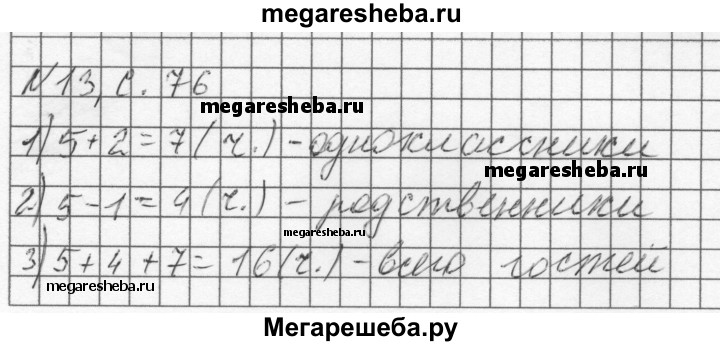 megaresheba.ru
№13, с. 76
megaresheba.ru
1) 5+2=7 (ч.) - одноклассники
megaresheba.ru
2) 5-1=4 (ч.) - родственники
megaresheba.ru
3) 5+4+7=16 (ч.) - всего гостей
megaresheba.ru
Мегарешеба.ру